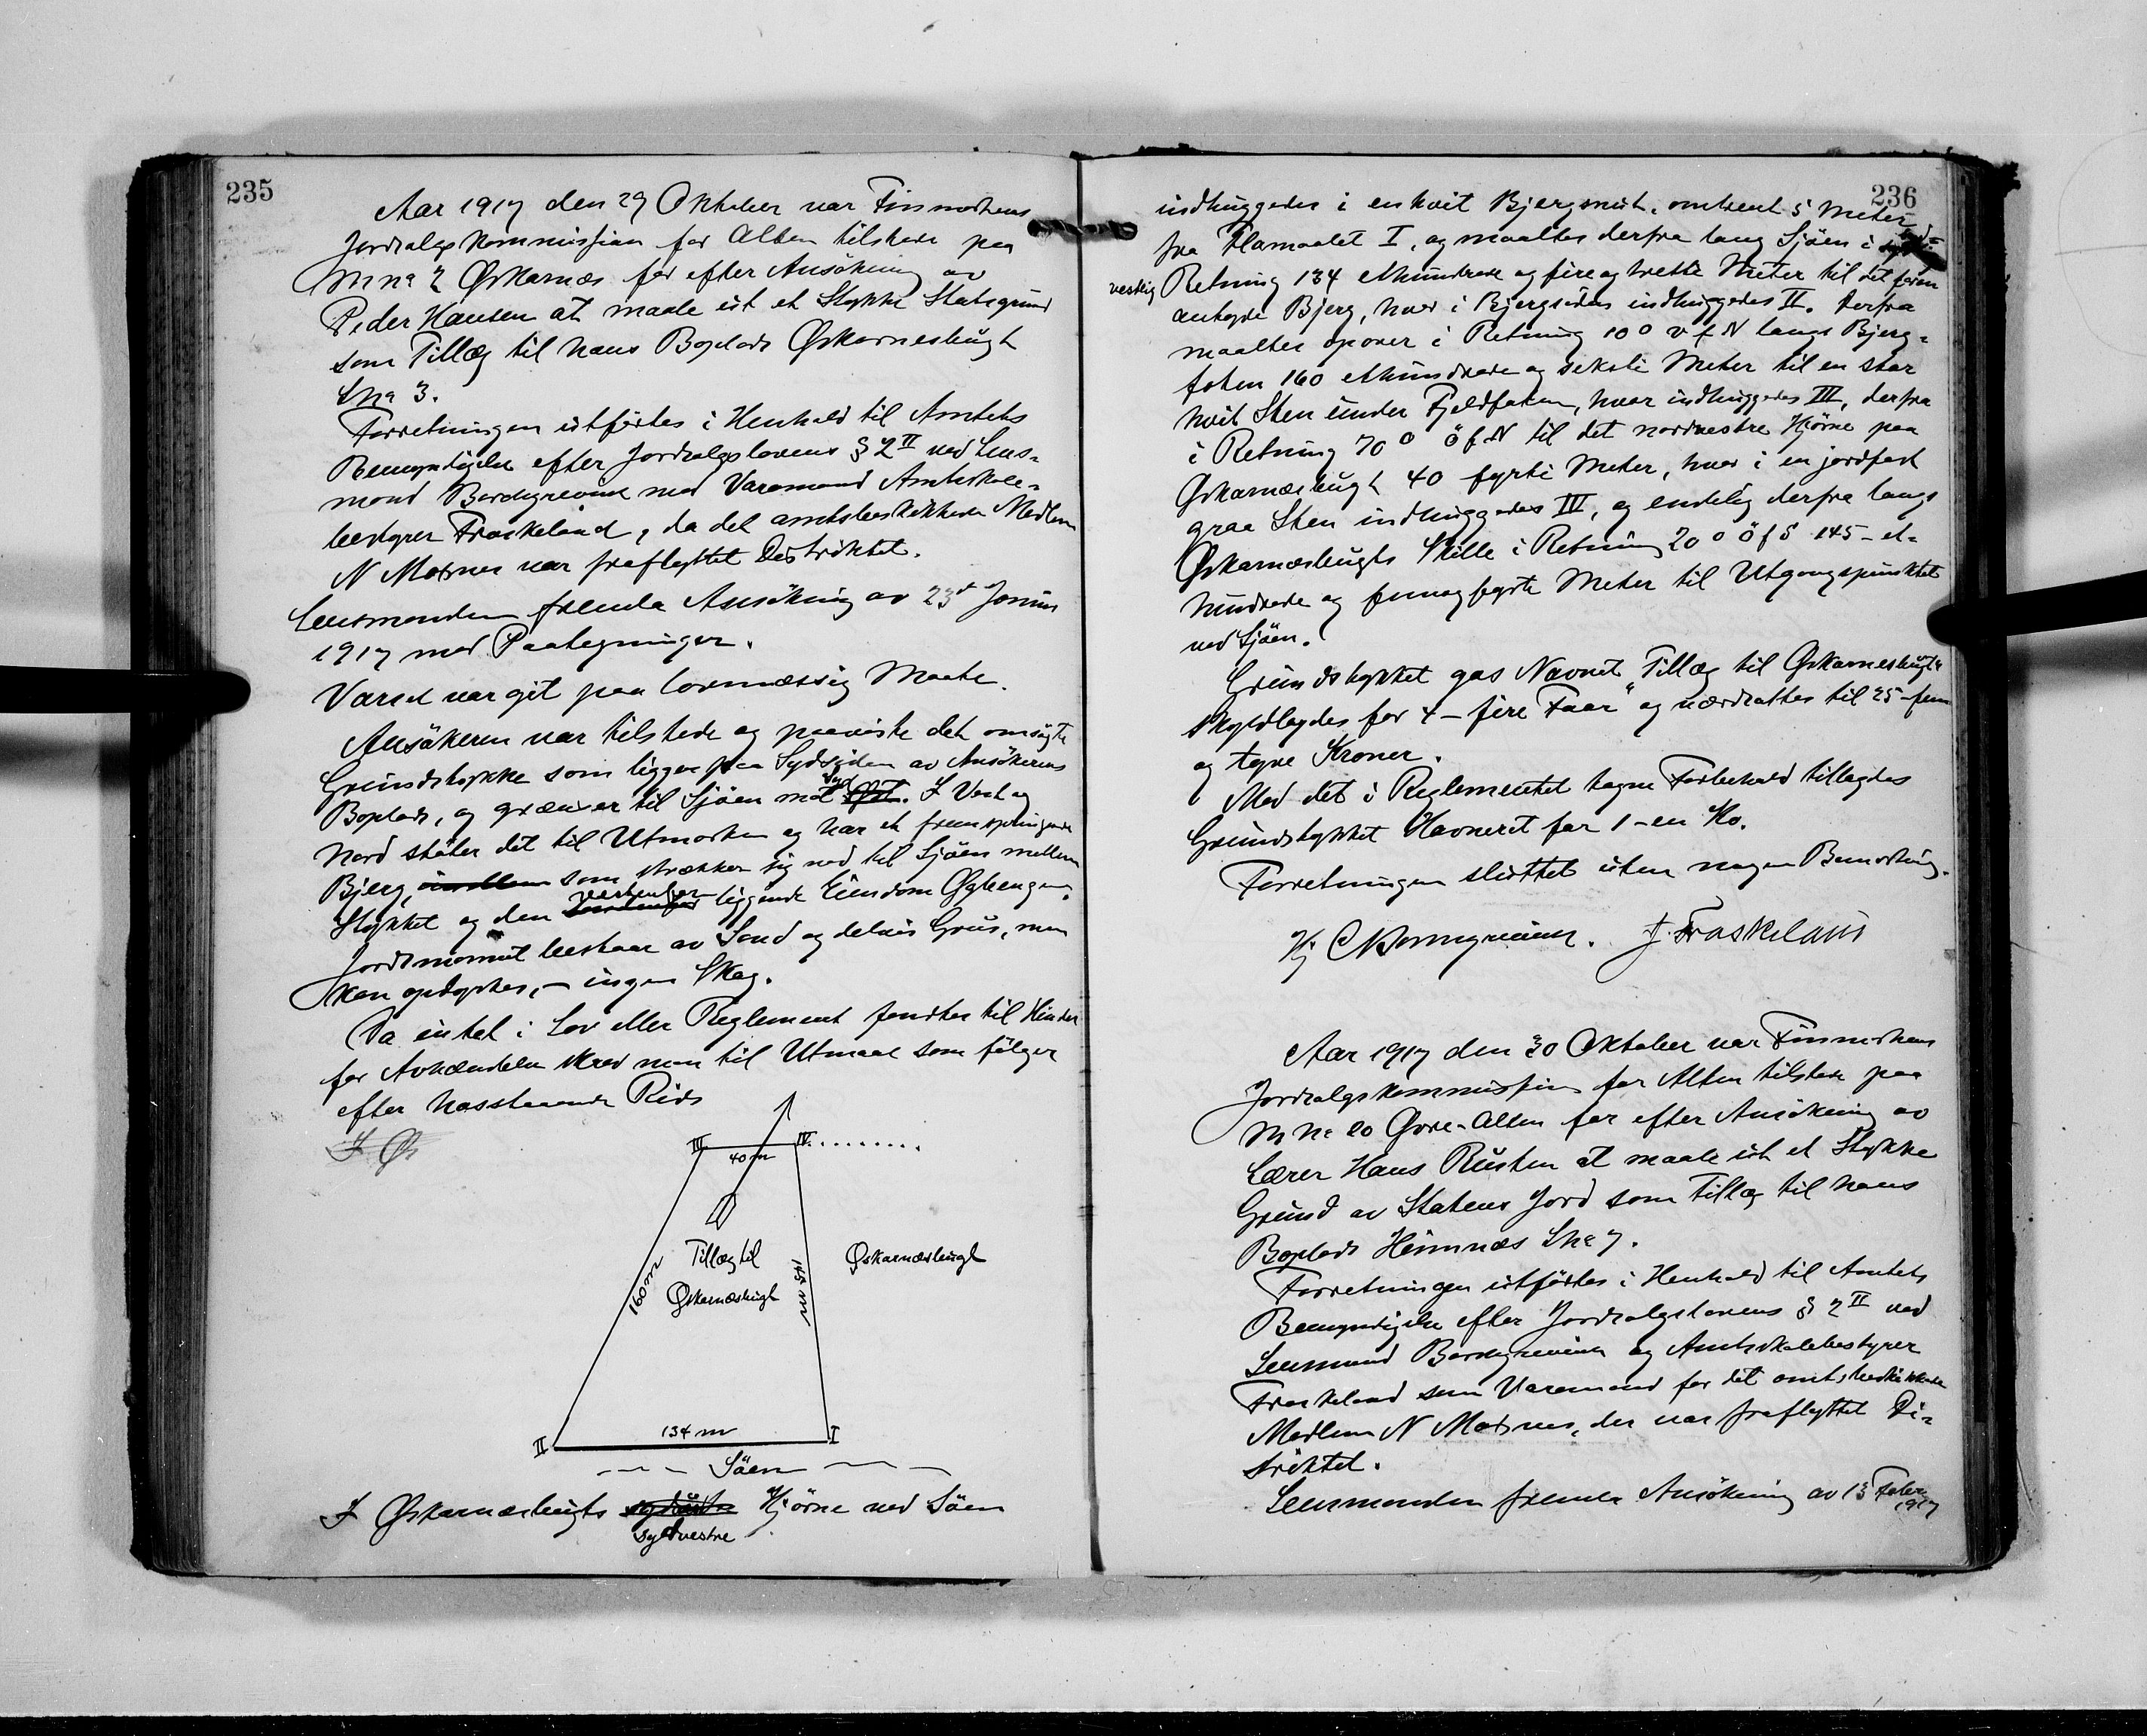 235
Aar 1917 den 29 Oktober var Finmarkens
Jordsalgskommission for Alten tilstede paa
M no 2 Øskarnæs for efter Ansøkning av
Peder Hansen at maale ut et Stykke Statsgrund
som Tillæg til hans Boplads Øskarnesbugt
Lno 3.
Forretningen utførtes i Henhold til Amtets
Bemyndigelse efter Jordsalgslovens § 2 II ved Lens-
mand Bordignevind med Varamand Amtskole-
bestyrer Fraskeland, da det amtsbeskikkede Medlem
N Matsnes var fraflyttet Distriktet.
Lensmanden fremla Ansøkning av 23de Junius
1917 med Paategninger.
Varsel var git paa lovmæssig Maate.
Ansøkeren var tilstede og paaviste det omsøgte
Grundstykke som ligger paa Sydsiden av Ansøkerens
Boplads, og grænser til Sjøen mot Syd Øst. I Vest og
Nord støter det til Utmarken og har et fremspringende
Bjerg, imellem som strækker sig ned til Sjøen mellem
Stykket og den vestenfor liggende Eiendom Øyteengen.
Jordsmonnet bestaar av Sand og delvis Grus, men
kan opdyrkes, – ingen Skog.
Da intet i Lov eller Reglement fandtes til Hinder
for Avhændelse skred man til Utmaal som følger
efter hosstaaende Rids
I Øs
III IV
40 m
160 m
Tillæg til
Øskarnæsbugt
145 m
Øskarnæsbugt
II 134 m I
Søen
I Øskarnæsbugts sydøstre sydvestre Hjørne ved Søen
236
indhuggedes i en hvit Bjergsnut, omtrent 5 Meter
fra Flomaalet I, og maaltes derfra lang Sjøen i
vestlig Retning 134 ethundrede og fire og tretti Meter til det foran
antydede Bjerg, hvor i Bjergsiden indhuggedes II. Derfra
maaltes opover i Retning 10° v f N langs Bjerg-
foten 160 ethundrede og seksti Meter til en stor
hvit Sten under Fjeldfoten, hvor indhuggedes III, derfra
i Retning 70° ö f N til det nordvestre Hjørne paa
Øskarnæsbugt 40 fyrti Meter, hvor i en jordfast
graa Sten indhuggedes IV, og endelig derfra langs
Øskarnæsbugts Skille i Retning 20° ö f S 145 – et-
hundrede og femogfyrti Meter til Utgangspunktet
ved Sjøen.
Grundstykket gas Navnet "Tillæg til Øskarnesbugt"
skyldlagdes for 4 – fire Øre og værdsattes til 25 – fem
og tyve Kroner.
Med det i Reglementet tagne Forbehold tillagdes
Grundstykket Havneret for 1 – en Ko.
Forretningen sluttet uten nogen Bemerkning.
J. Fraskeland
Aar 1917 den 30 Oktober var Finmarkens
Jordsalgskommission for Alten tilstede paa
M No 20 Øvre-Alten for efter Ansøkning av
Lærer Hans Rusten at maale ut et Stykke
Grund av Statens Jord som Tillæg til hans
Boplads Heimnæs Lno 7.
Forretningen utførtes i Henhold til Amtets
Bemyndigelse efter Jordsalgslovens § 2 II ved
Lensmand Bordignevind og Amtsskolebestyrer
Fraskeland som Varamand for det amtsbeskikkede
Medlem N Matsnes, der var fraflyttet Di-
striktet.
Lensmanden fremla Ansøkning av 13 Febr 1917